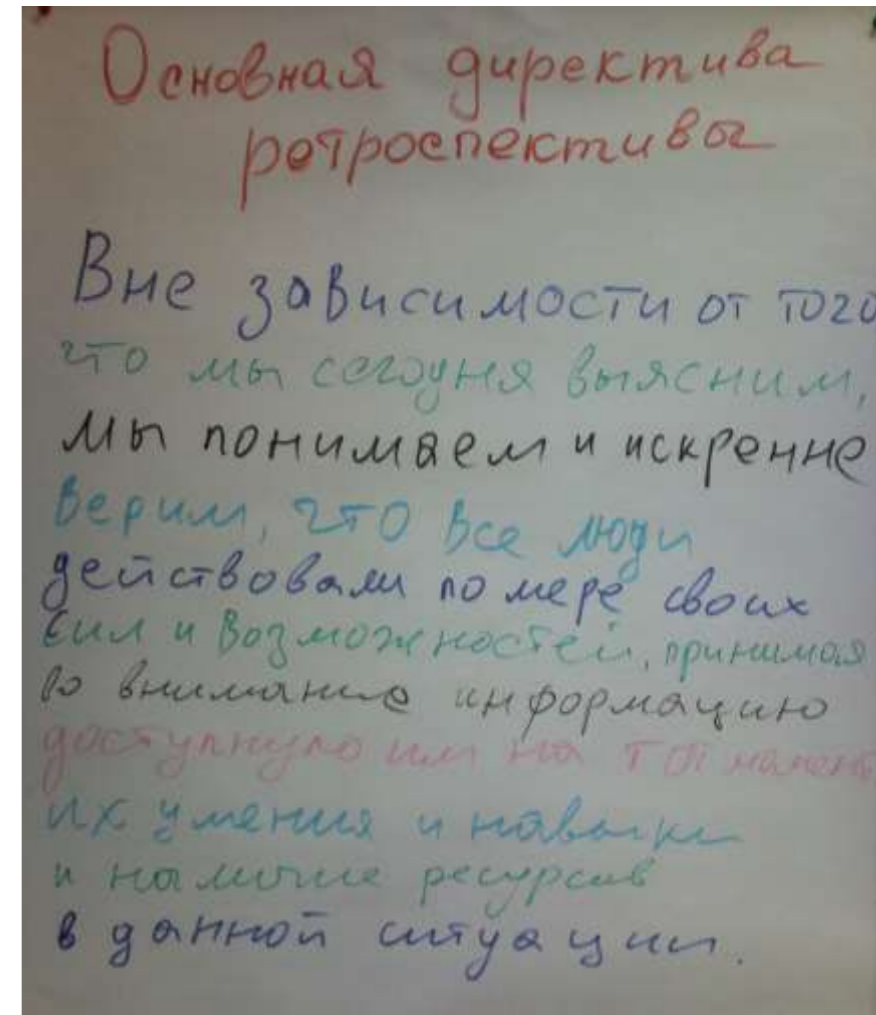 Основная директива
ретроспективы
Вне зависимости от того
что мы сегодня выясним,
мы понимаем и искренне
верим, что все люди
действовали по мере своих
сил и возможностей, принимая
во внимание информацию
доступную им на тот момент
их умения и навыки
и наличие ресурсов
в данной ситуации.